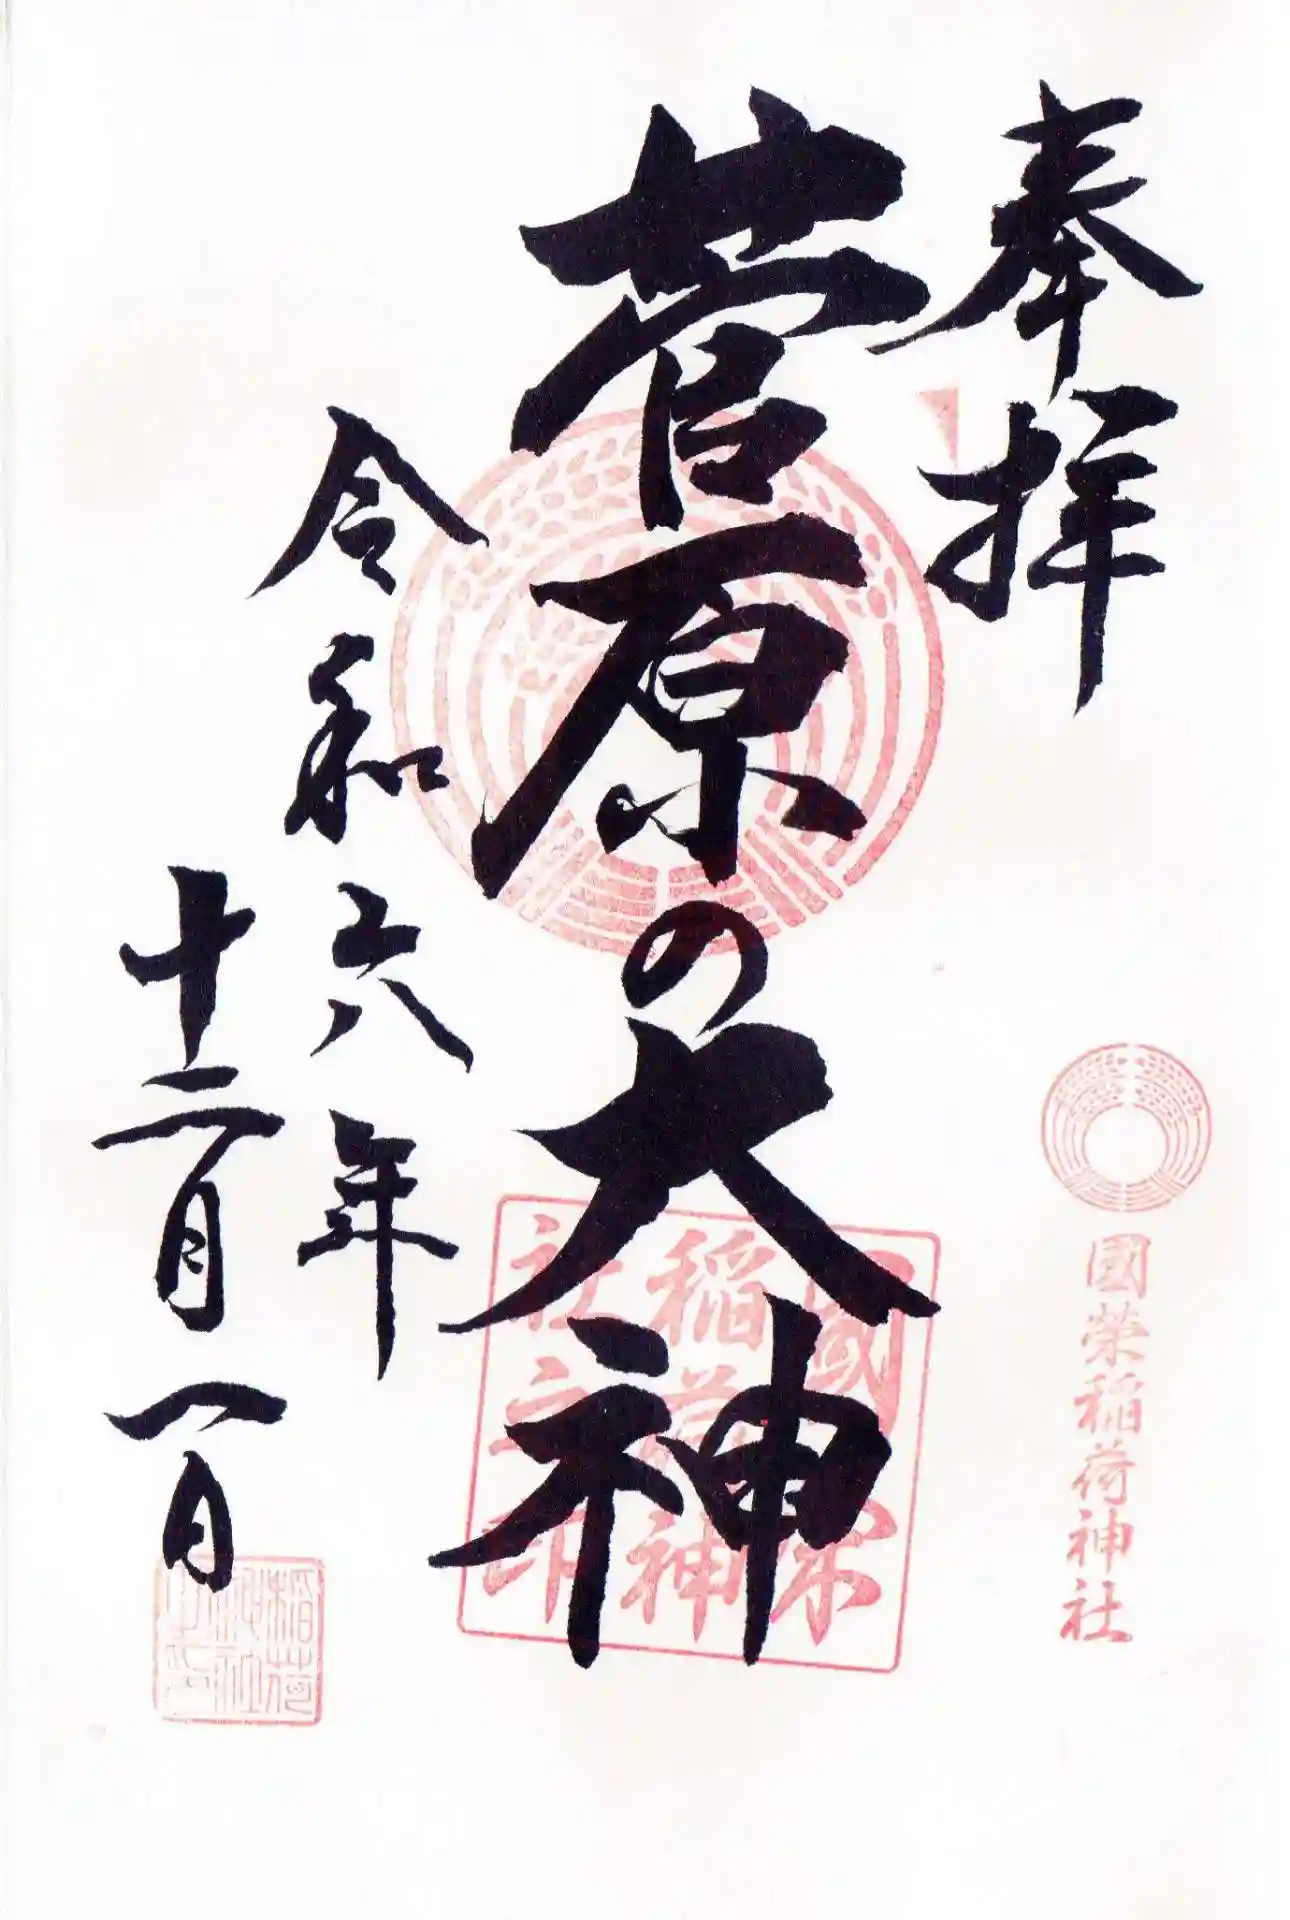 奉拝
國榮稲荷神社
菅原の大神
國榮
稲荷神
社之印
令和六年
十二月一日